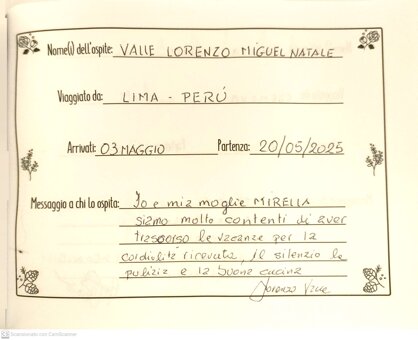 Nome(i) dell'ospite: VALLE LORENZO MIGUEL NATALE
Viaggiato da: LIMA - PERÚ
Arrivati: 03 MAGGIO Partenza: 20/05/2025
Messaggio a chi lo ospita: Io e mia moglie MIRELLA
siamo molto contenti di aver
trascorso le vacanze per la
cordialità ricevuta, il silenzio la
pulizia e la buona cucina
Lorenzo Valle
Scansionato con CamScanner